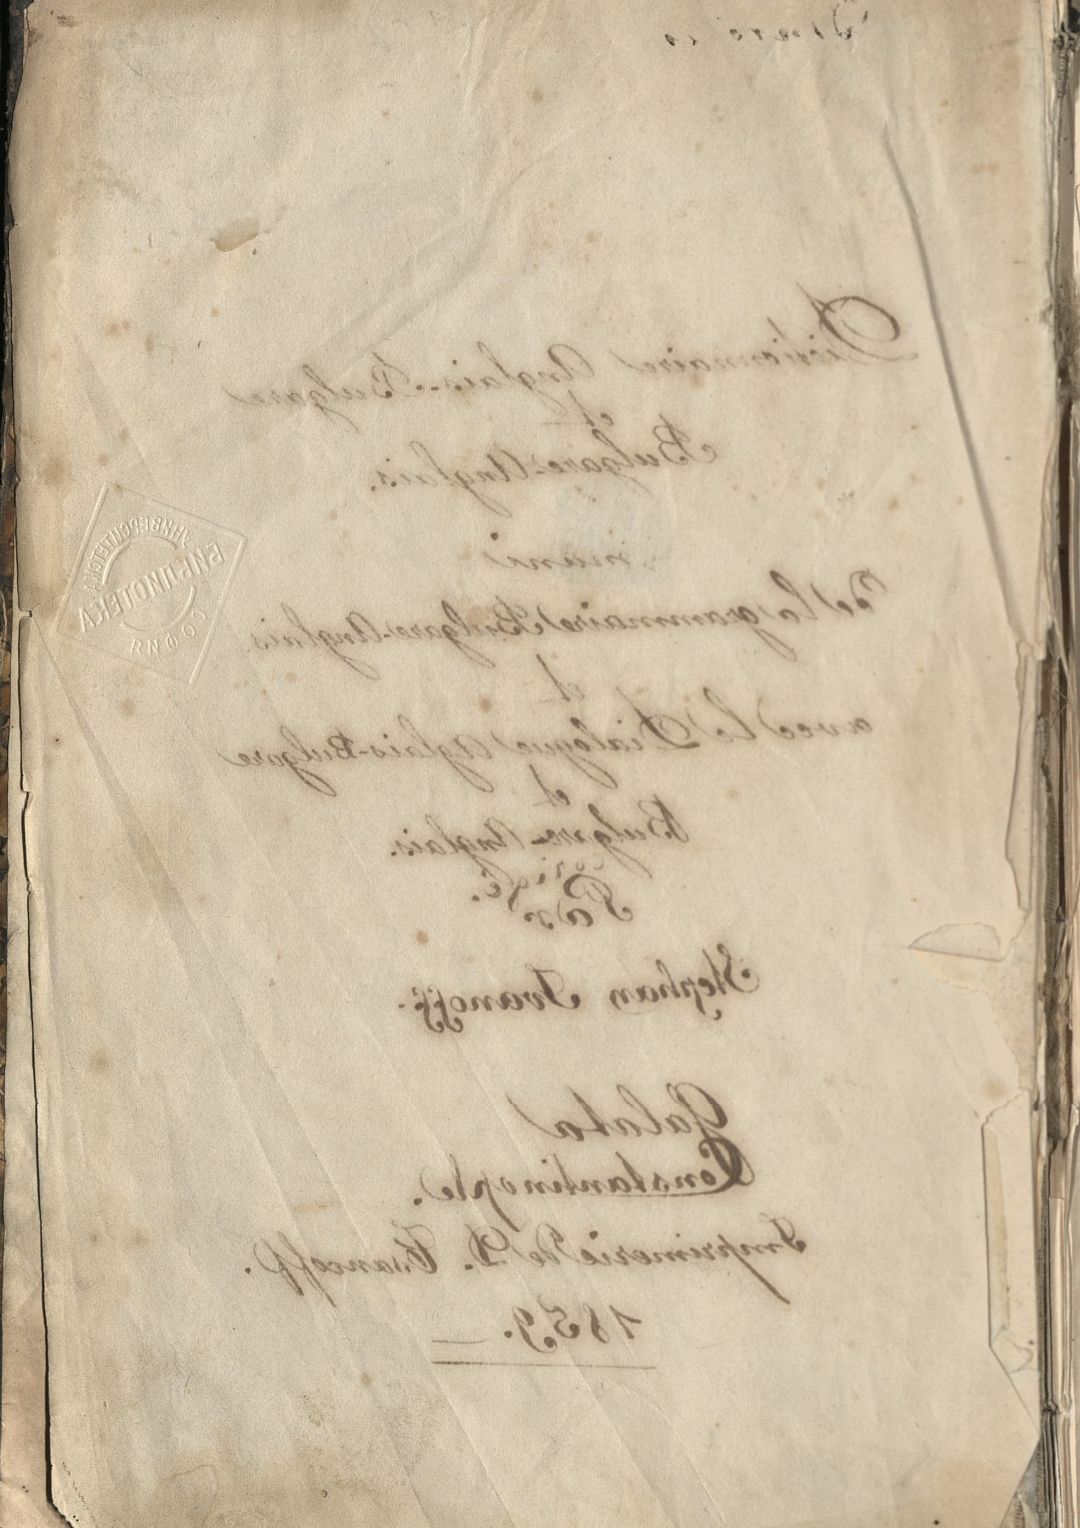 Dictionnaire Anglais-Bulgare
et
Bulgare-Anglais.
muni
de la grammaire Bulgare-Anglais.
et
avec le Dialogue Aglais-Bulgare
et
Bulgare-Anglais.
Par
Stephan Ivanoff.
Galata
Constantinople.
Imprimerie de D. Tsancoff.
1859.
УНИВЕРСИТЕТСКА
БИБЛИОТЕКА
СОФИЯ